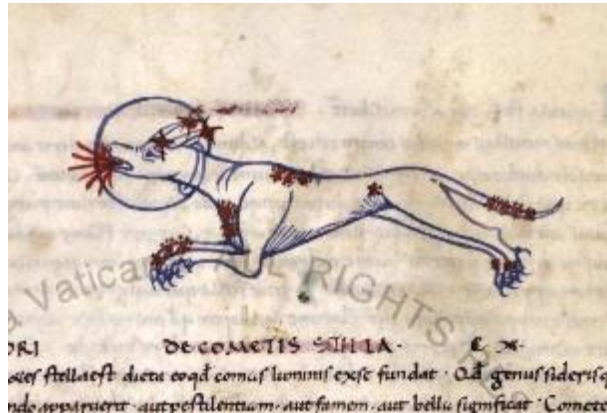 a Vatican ALL RIGHTS RE
ORI DE COMETIS STELLA · C X.
stella est dicta eo qd comas luminis ex se fundat · Qd genus sideris q
ndo apparuerit · aut pestilentium · aut famem · aut bellu significat · Cometa